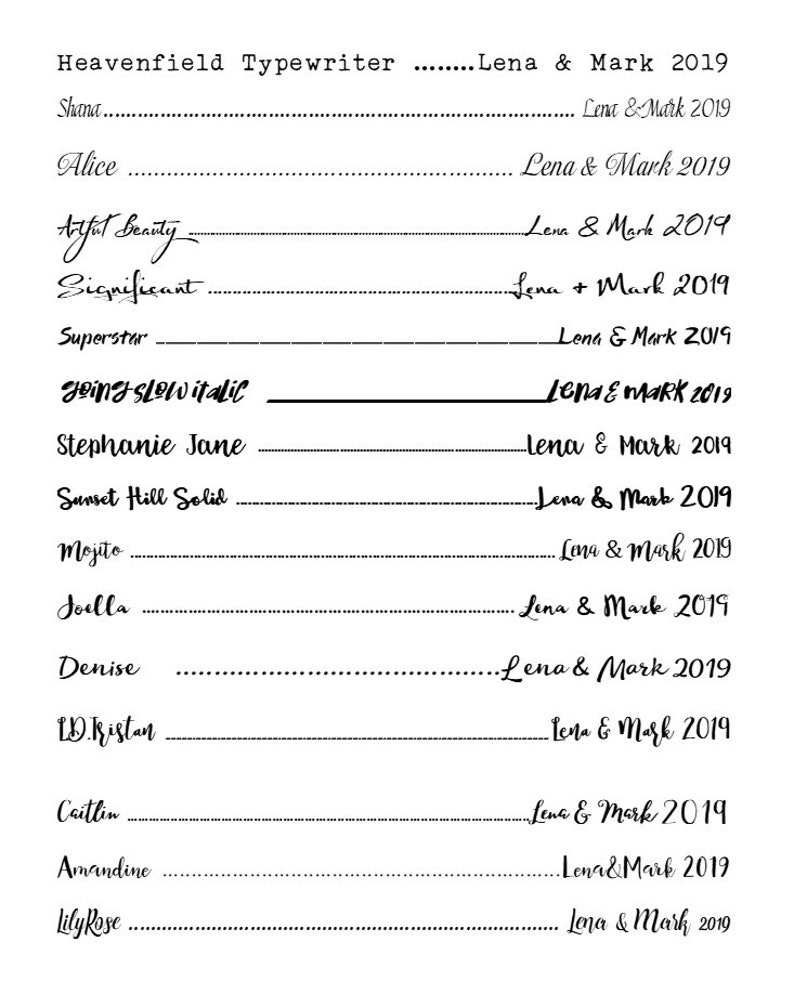 Heavenfield Typewriter ........Lena & Mark 2019
Shana.................................................................... Lena &Mark 2019
Alice ..................................................... Lena & Mark 2019
Artful Beauty ..........................................................Lena & Mark 2019
Significant ..................................................Lena + Mark 2019
Superstar ..........................................................Lena & Mark 2019
going slow italic ..................................................Lena & mark 2019
Stephanie Jane ..................................................Lena & Mark 2019
Sunset Hill Solid ..................................................Lena & Mark 2019
Mojito .................................................................... Lena & Mark 2019
Joella .............................................................. Lena & Mark 2019
Denise ........................................Lena & Mark 2019
LD.Tristan ..........................................................Lena & Mark 2019
Caitlin ....................................................................Lena & Mark 2019
Amandine ..........................................................Lena&Mark 2019
LilyRose .............................................................. Lena & Mark 2019